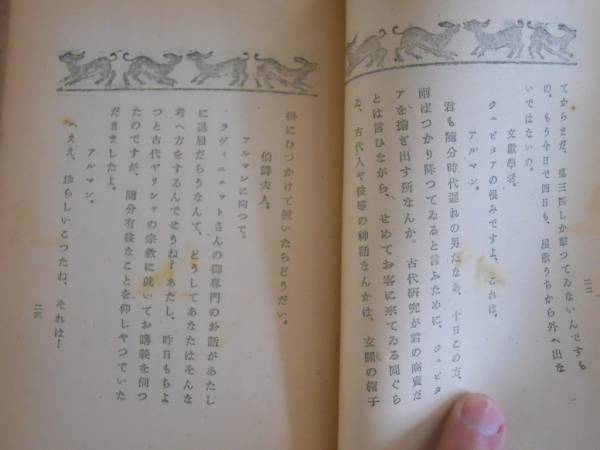 てからまだ、兎三匹しか撃つてゐないんですも
の。もう今日で四日も、屋敷うちから外へ出な
いではないの。
文献學者。
ジュピタアの恨みですよ、これは。
アルマン。
君も随分時代遅れの男だなあ、十日この方、
雨ばつかり降つてゐると言ふために、ジュピタ
アを擔ぎ出す所なんか。古代研究が君の商賣だ
とは言ひながら、せめてお客に來てゐる間ぐら
ゐ、古代人や彼等の神話なんかは、玄關の帽子
二二
掛にひつかけて置いたらどうだい。
伯爵夫人。
アルマンに向つて。
ラヴィニェットさんの御專門のお話があたし
に退屈だらうなんて、どうしてあなたはそんな
考へ方をするんでせうね?あたし、昨日もちよ
つと古代ギリシヤの宗教に就いてお講義を伺つ
たのですが、随分有益なことを仰しやつていた
だきましたよ。
アルマン。
へええ、珍らしいこつたね、それは!
二三